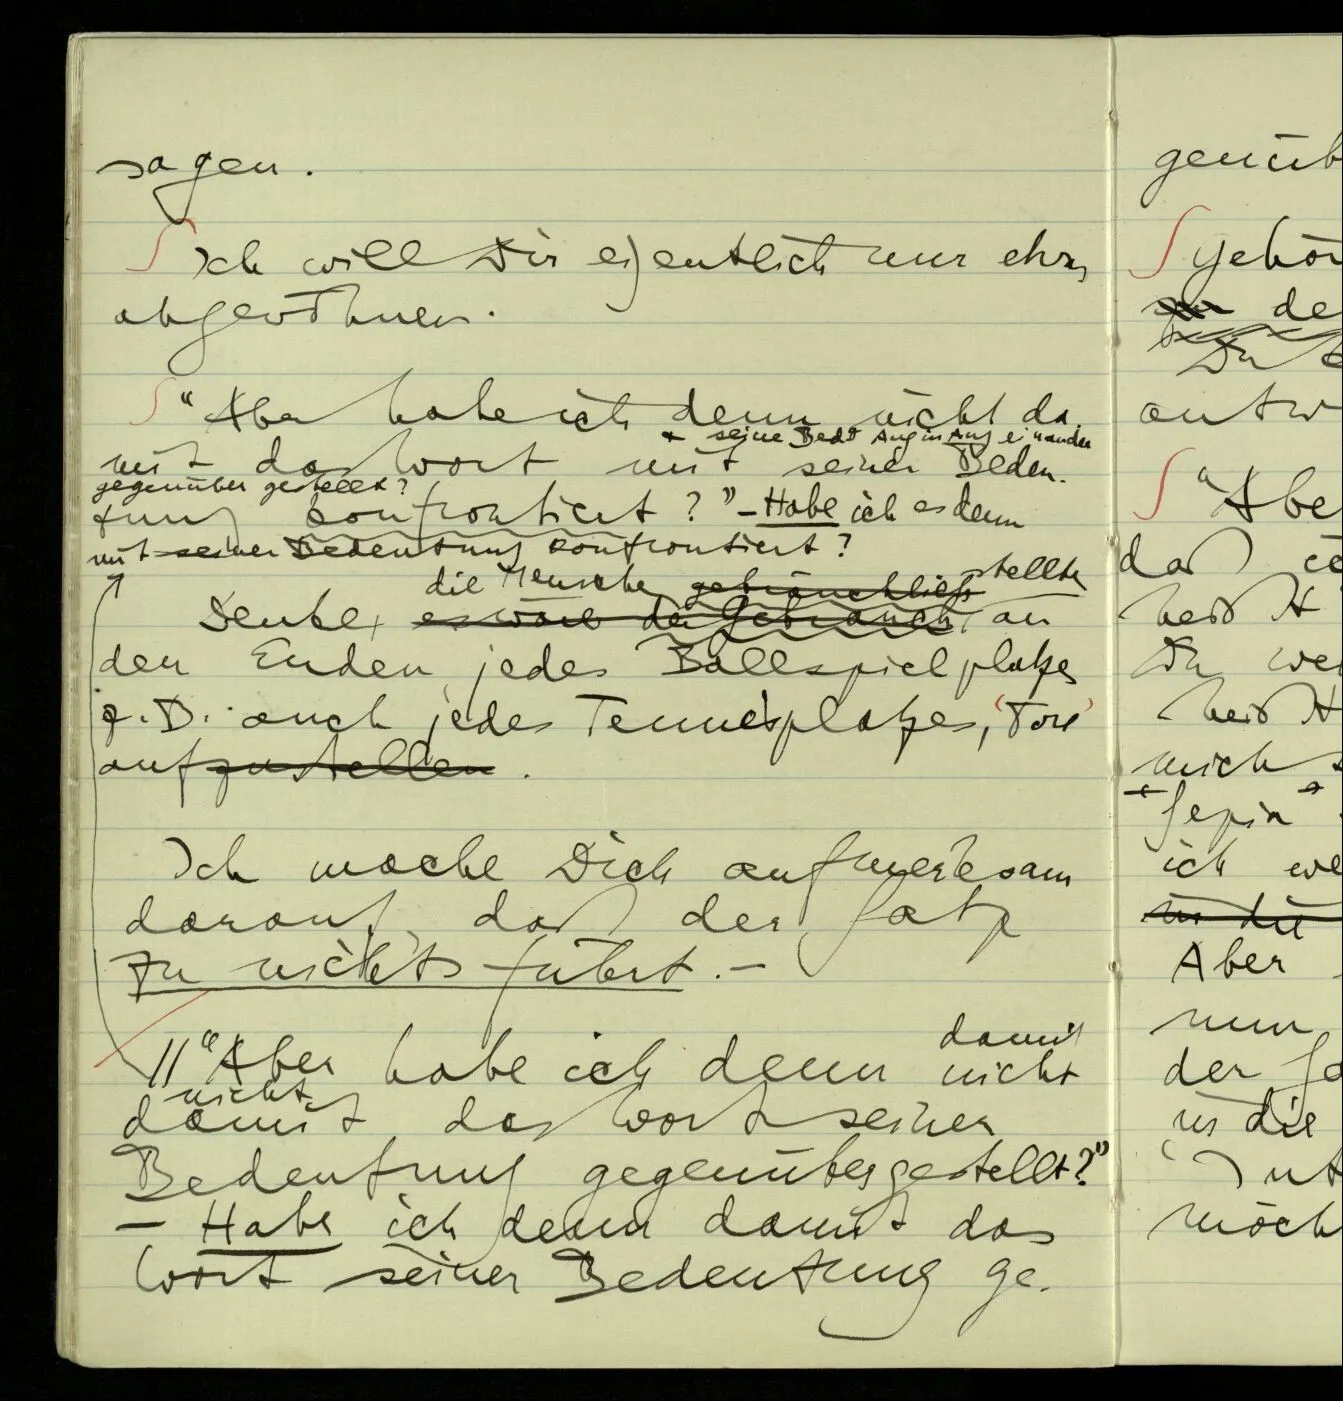 sagen.
∫ Ich will Dir eigentlich nur etwas
abgewöhnen.
∫ "Aber habe ich denn nicht da-
+ seine Bedtg Aug in Aug einander
mit das Wort mit seiner Bedeu-
gegenüber gestellt?
tung konfrontiert?" – Habe ich es denn
mit seiner Bedeutung konfrontiert?
die Menschen gebräuchlich stellten
Denke, es wäre der Gebrauch, an
den Enden jedes Ballspielplatzes
z.B. auch jedes Tennisplatzes, 'Tore'
aufzustellen.
Ich mache Dich aufmerksam
darauf, daß der Satz
zu nichts führt. –
damit
// "Aber habe ich denn nicht
nicht
damit das Wort seiner
Bedeutung gegenübergestellt?"
– Habe ich denn damit das
Wort seiner Bedeutung ge-
genüb
∫ Gehör
de
Du
antw
∫ "Aber
daß
heißt
Du we
heißt
mich
"Sepia"
ich we
in die
Aber
nun
der Sa
in die
möch